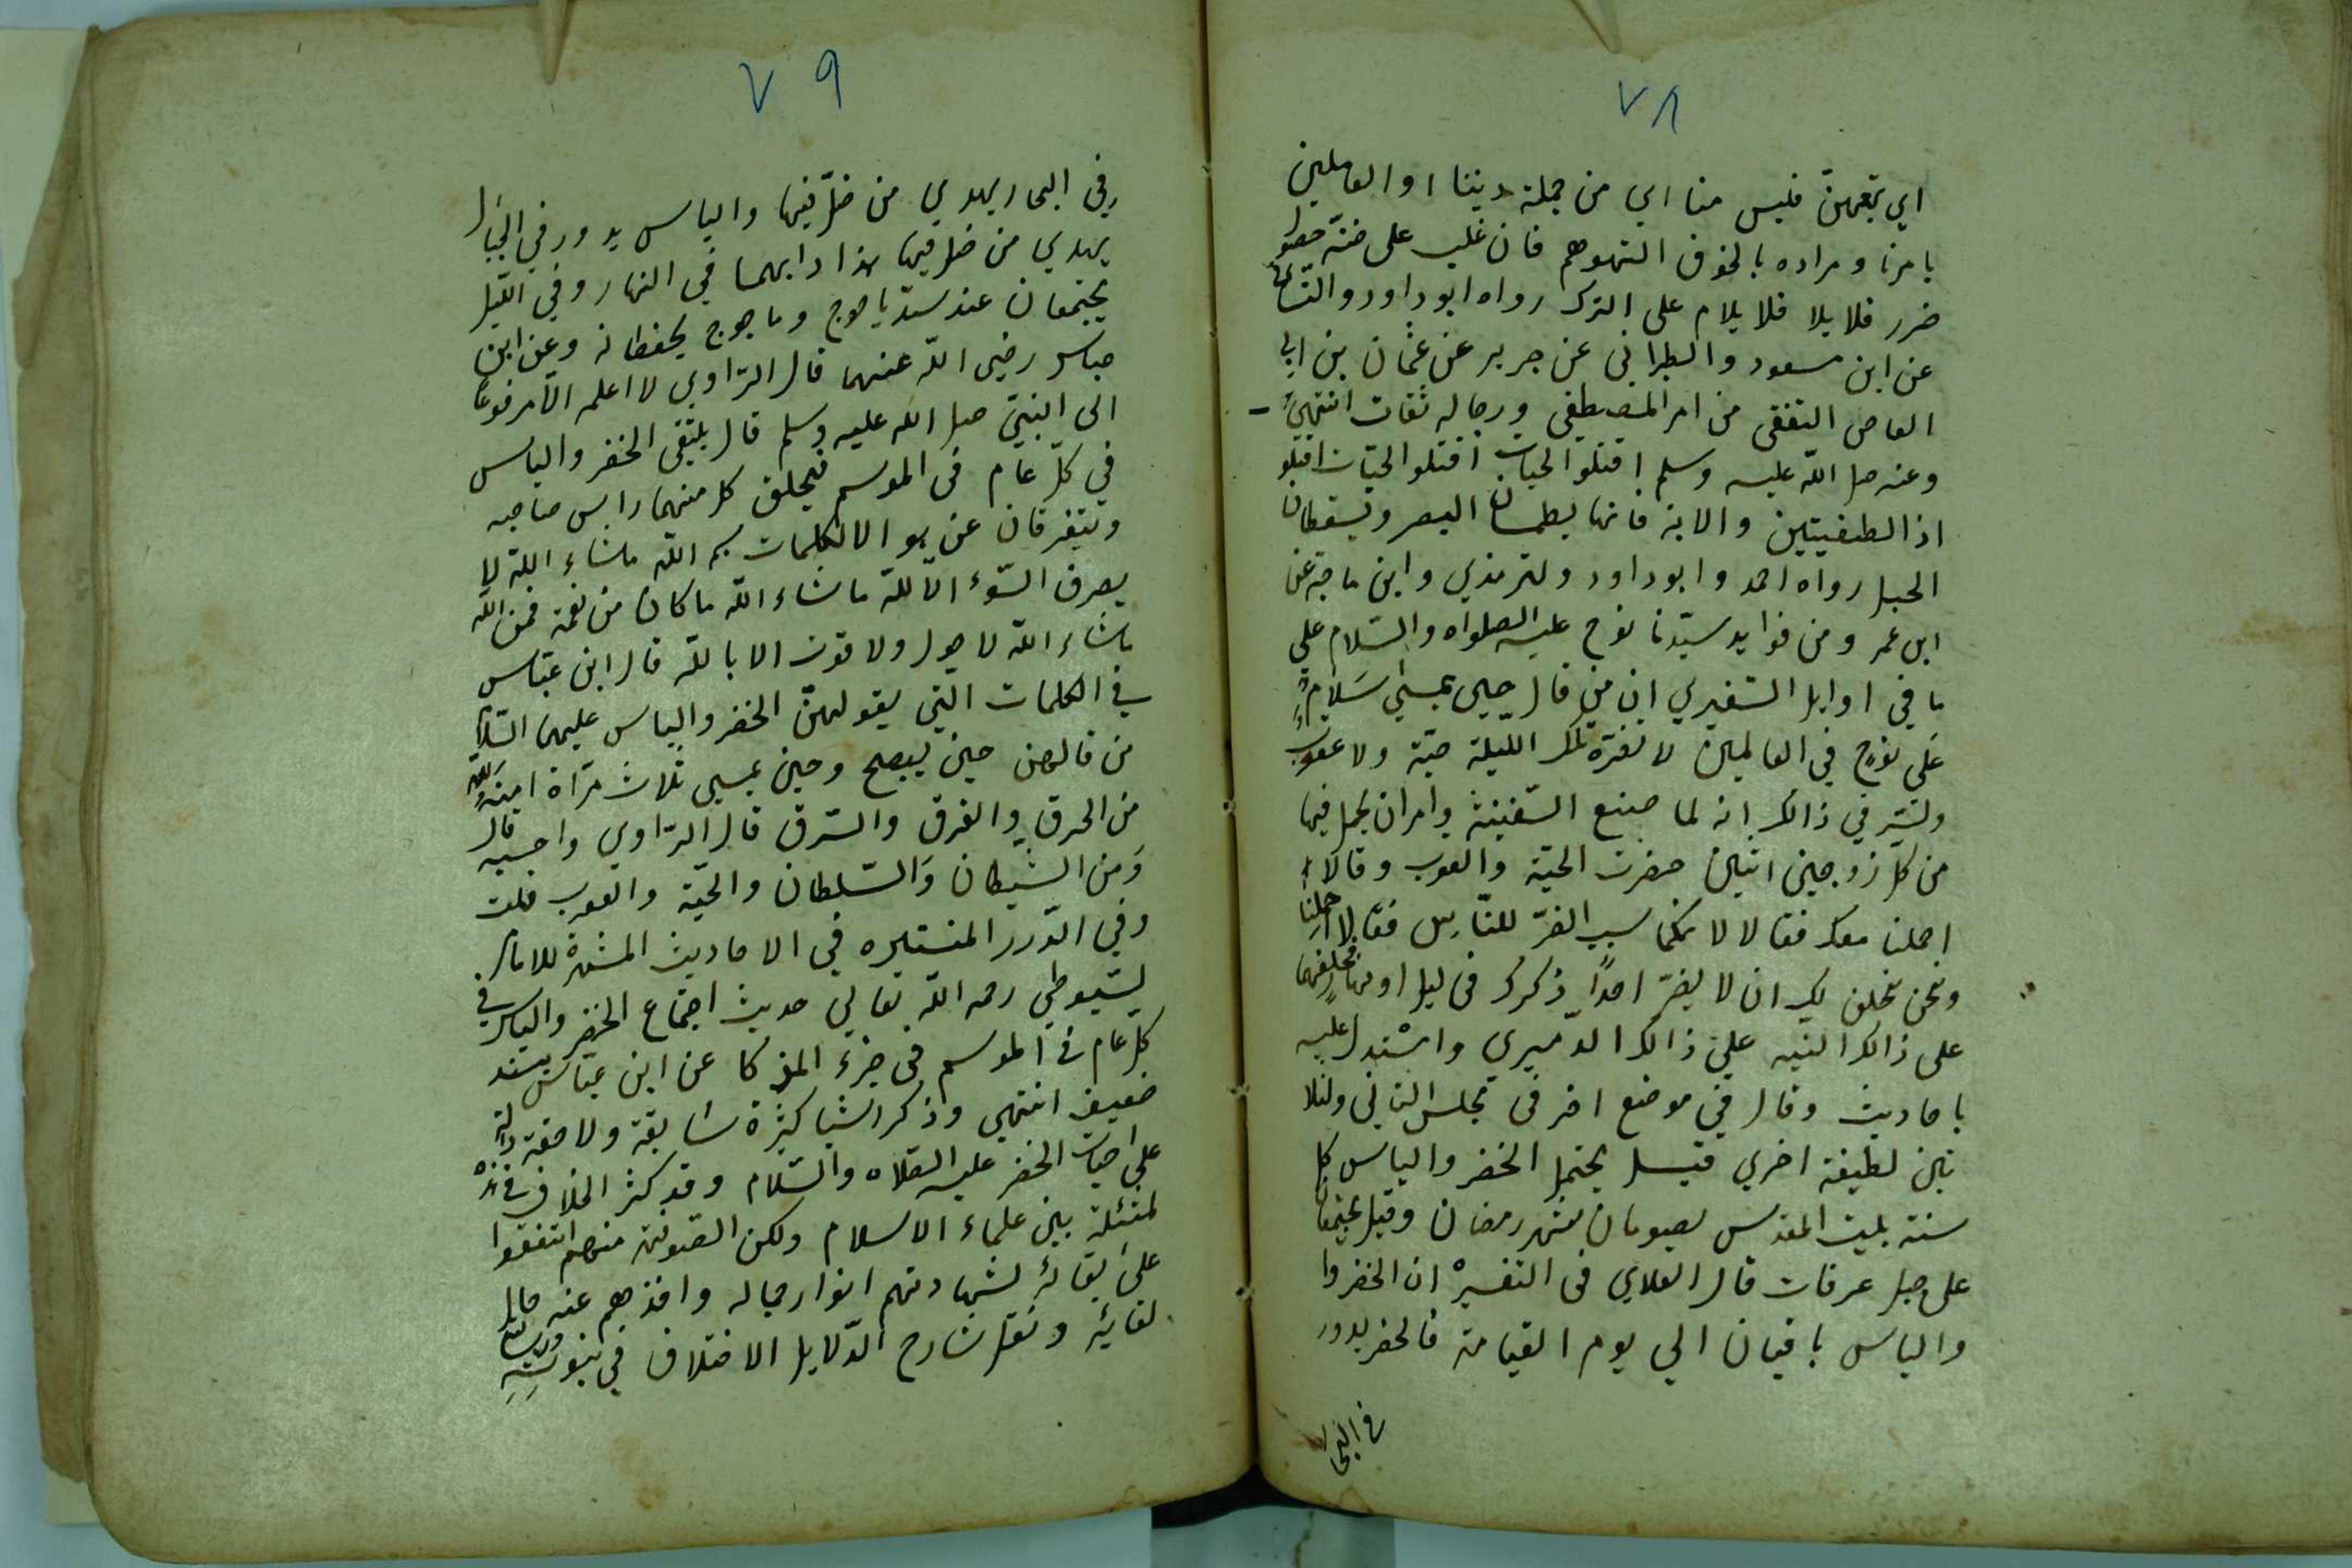 ٧٨
اي تبعهنّ فليس منا اي من جملة ديننا او العاملين
بامرنا ومراده بالخوف التوهم فان غلب على ضنّه حصول
ضرر فلا يلا فلا يلام على الترك رواه ابو داود والنسائي
عن ابن مسعود والطبراني عن جرير عن عثمان بن ابي
العاص الثقفي من امر المصطفى ورجاله ثقات انتهى
وعنه صل الله عليه وسلم اقتلوا لحيات اقتلوا الحيّات اقتلو
اذا الطفيتين والابتر فانها يطمسان البصر ويسقطان
الحبل رواه احمد وابو داود ولترمذي وابن ماجة عن
ابن عمر ومن فوايد سيّدنا نوح عليه الصلواه والسّلام على
ما في اوايل السّفيري ان من قال حين يمسي سَلامٌ
عَلى نوحٍ في العالمين لا تضره تلك الليلة حيّة ولا عقرب
ولسّر في ذالك انه لما صنع السّفينة وامر ان يحمل فيها
من كلّ زوجين اثنين حضرت الحيّة والعقرب وقالا
احملنا معك فقا لا لا نكما سبب الضرّ للنّاس فقالا احملنا
ونحن نحلف لك ان لا يضرّ احدًا ذكرك في ليل او نهار فحلفهما
على ذالك النبه على ذالك الدّميري واسْتدل عليه
باحاديث وقال في موضع اخر في مجلس الثاني ولثلا
ثين لطيفة اخري قيل يجتمل الخضر والياس كل
سنة بليت المقدس يصومان شهر رمضان وقيل يجتمعان
على جبل عرفات قال العلاي في التفسيرْ ان الخضر وا
والياس باقيان الي يوم القيامة فالخضر يدور
في البحا
٧٩
رفي البحار يهدي من ضلّ فيها والياس يدور في الجبال
يهدي من ضل فيها هذا دابهما في النهار وفي الليل
يجتمعان عند سدّ ياجوج وماجوج يحفظانه وعن ابن
عباس رضي الله عنهما قال الرّاوي لا اعلمه الاّ مرفوعا
الى النبيّ صل الله عليه وسلم قال يلتقي الخضر والياس
في كلّ عام في الموسم فيحلق كل منهما راس صاحبه
ويتفرقان عن هو الا الكلمات بسم الله ماشاء الله لا
يصرف السّوء الاّ للّه ماشاء الله ما كان من نعمة فمن الله
ماشاء الله لا حول ولا قوت الا بالله قال ابن عبّاس
في الكلمات التي يقولهنّ الخضر والياس عليهما السّلام
من قالهن حين يبصح وحين يمسي ثلاث مرّاة امنه الله
من الحرق والغرق والسّرق قال الرّاوي واحسبه قال
وَمن الشيطان وَالسّلطان والحيّة والعقرب قلت
وفي الدّرر المنتثره في الاحاديث المشتهرة للامام
لسّيوطي رحمه الله تعالي حديث اجتماع الخضر والياس في
كل عام في الموسم في جزء المزكا عن ابن عبّاس بسند
ضعيف انتهي وذكر اشيا كثيرة سابقة ولاحقة دالة
على احيات الخضر عليه الصّلاه والسّلام وقد كثر الخلاف في هذه
لمسئلة بين علماء الاسلام ولكن الصّوفيّه منهم اتفقوا
على بقائه لشهادتهم انوار جماله واخذهم عنه حال
لقائِه ونقل شارح الدّلايل الاختلاف في نبوته ورسالته